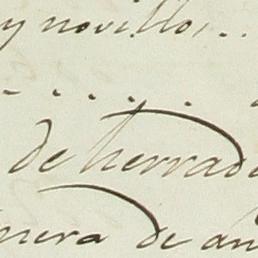 y novillos..
de herrade
mera de an